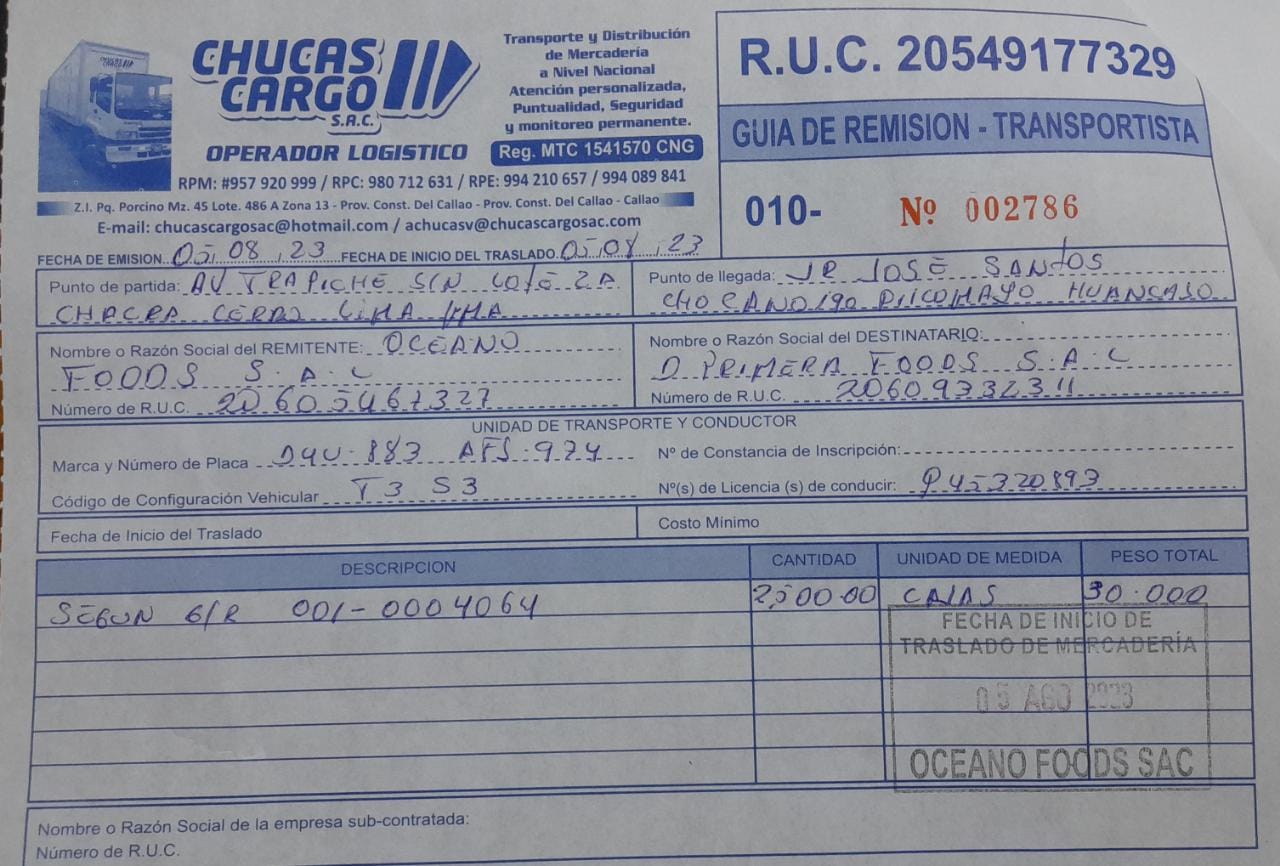 CHUCAS CARGO S.A.C.
OPERADOR LOGISTICO
Transporte y Distribución
de Mercadería
a Nivel Nacional
Atención personalizada,
Puntualidad, Seguridad
y monitoreo permanente.
Reg. MTC 1541570 CNG
RPM: #957 920 999 / RPC: 980 712 631 / RPE: 994 210 657 / 994 089 841
Z.I. Pq. Porcino Mz. 45 Lote. 486 A Zona 13 - Prov. Const. Del Callao - Prov. Const. Del Callao - Callao
E-mail: chucascargosac@hotmail.com / achucasv@chucascargosac.com
R.U.C. 20549177329
GUIA DE REMISION - TRANSPORTISTA
010- Nº 002786
FECHA DE EMISION 05 08 23 FECHA DE INICIO DEL TRASLADO 05 08 23
Punto de partida: AV TRAPICHE SIN LOTE 2A
CHACRA CERRO LIMA LIMA
Punto de llegada: JR JOSE SANTOS
CHOCANO 190 PILCOMAYO HUANCAYO
Nombre o Razón Social del REMITENTE: OCEANO
FOODS S.A.C
Número de R.U.C. 20605467327
Nombre o Razón Social del DESTINATARIO:
D PRIMERA FOODS S.A.C
Número de R.U.C. 20609332311
UNIDAD DE TRANSPORTE Y CONDUCTOR
Marca y Número de Placa D4U-883 AFS-974
Nº de Constancia de Inscripción:
Código de Configuración Vehicular T3 S3
Nº(s) de Licencia (s) de conducir: Q45320893
Fecha de Inicio del Traslado
Costo Mínimo
DESCRIPCION CANTIDAD UNIDAD DE MEDIDA PESO TOTAL
SEGUN G/R 001-0004064 2,500.00 CAJAS 30.000
FECHA DE INICIO DE
TRASLADO DE MERCADERÍA
05 AGO 2023
OCEANO FOODS SAC
Nombre o Razón Social de la empresa sub-contratada:
Número de R.U.C.